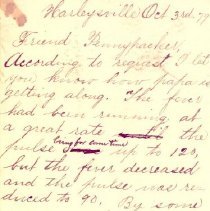 Harleysville Oct 3rd. 79
Friend Pennypacker,
According to request I let
you know how papa is
getting along. The fever
had been running at
a great rate the
being for some time
pulse up to 120,
but the fever decreased
and the pulse was re-
duced to 90. By some